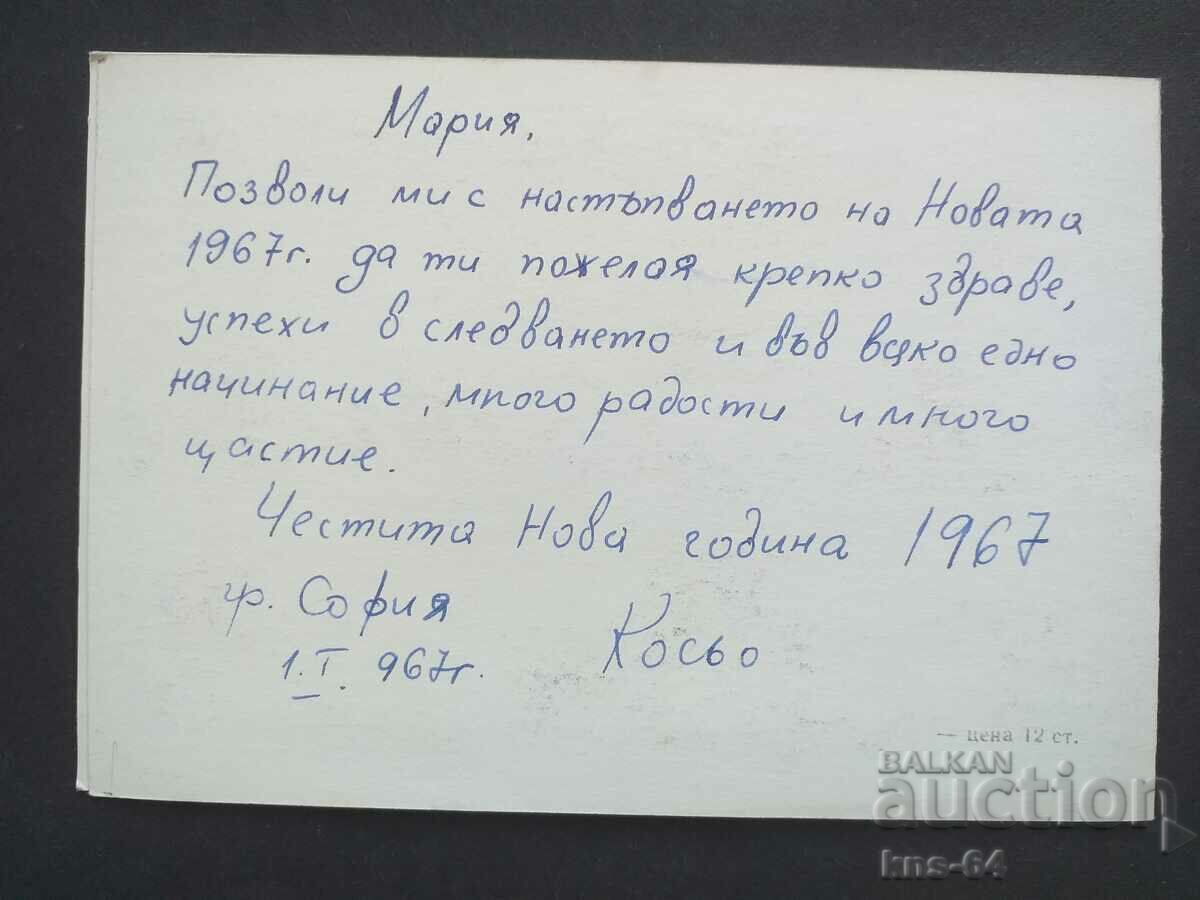 Мария,
Позволи ми с настъпването на Новата
1967г. да ти пожелая крепко здраве,
успехи в следването и във всяко едно
начинание, много радости и много
щастие.
Честита Нова година 1967
гр. София
Косьо
1.I. 967г.
— цена 12 ст.
BALKAN
auction
kns-64